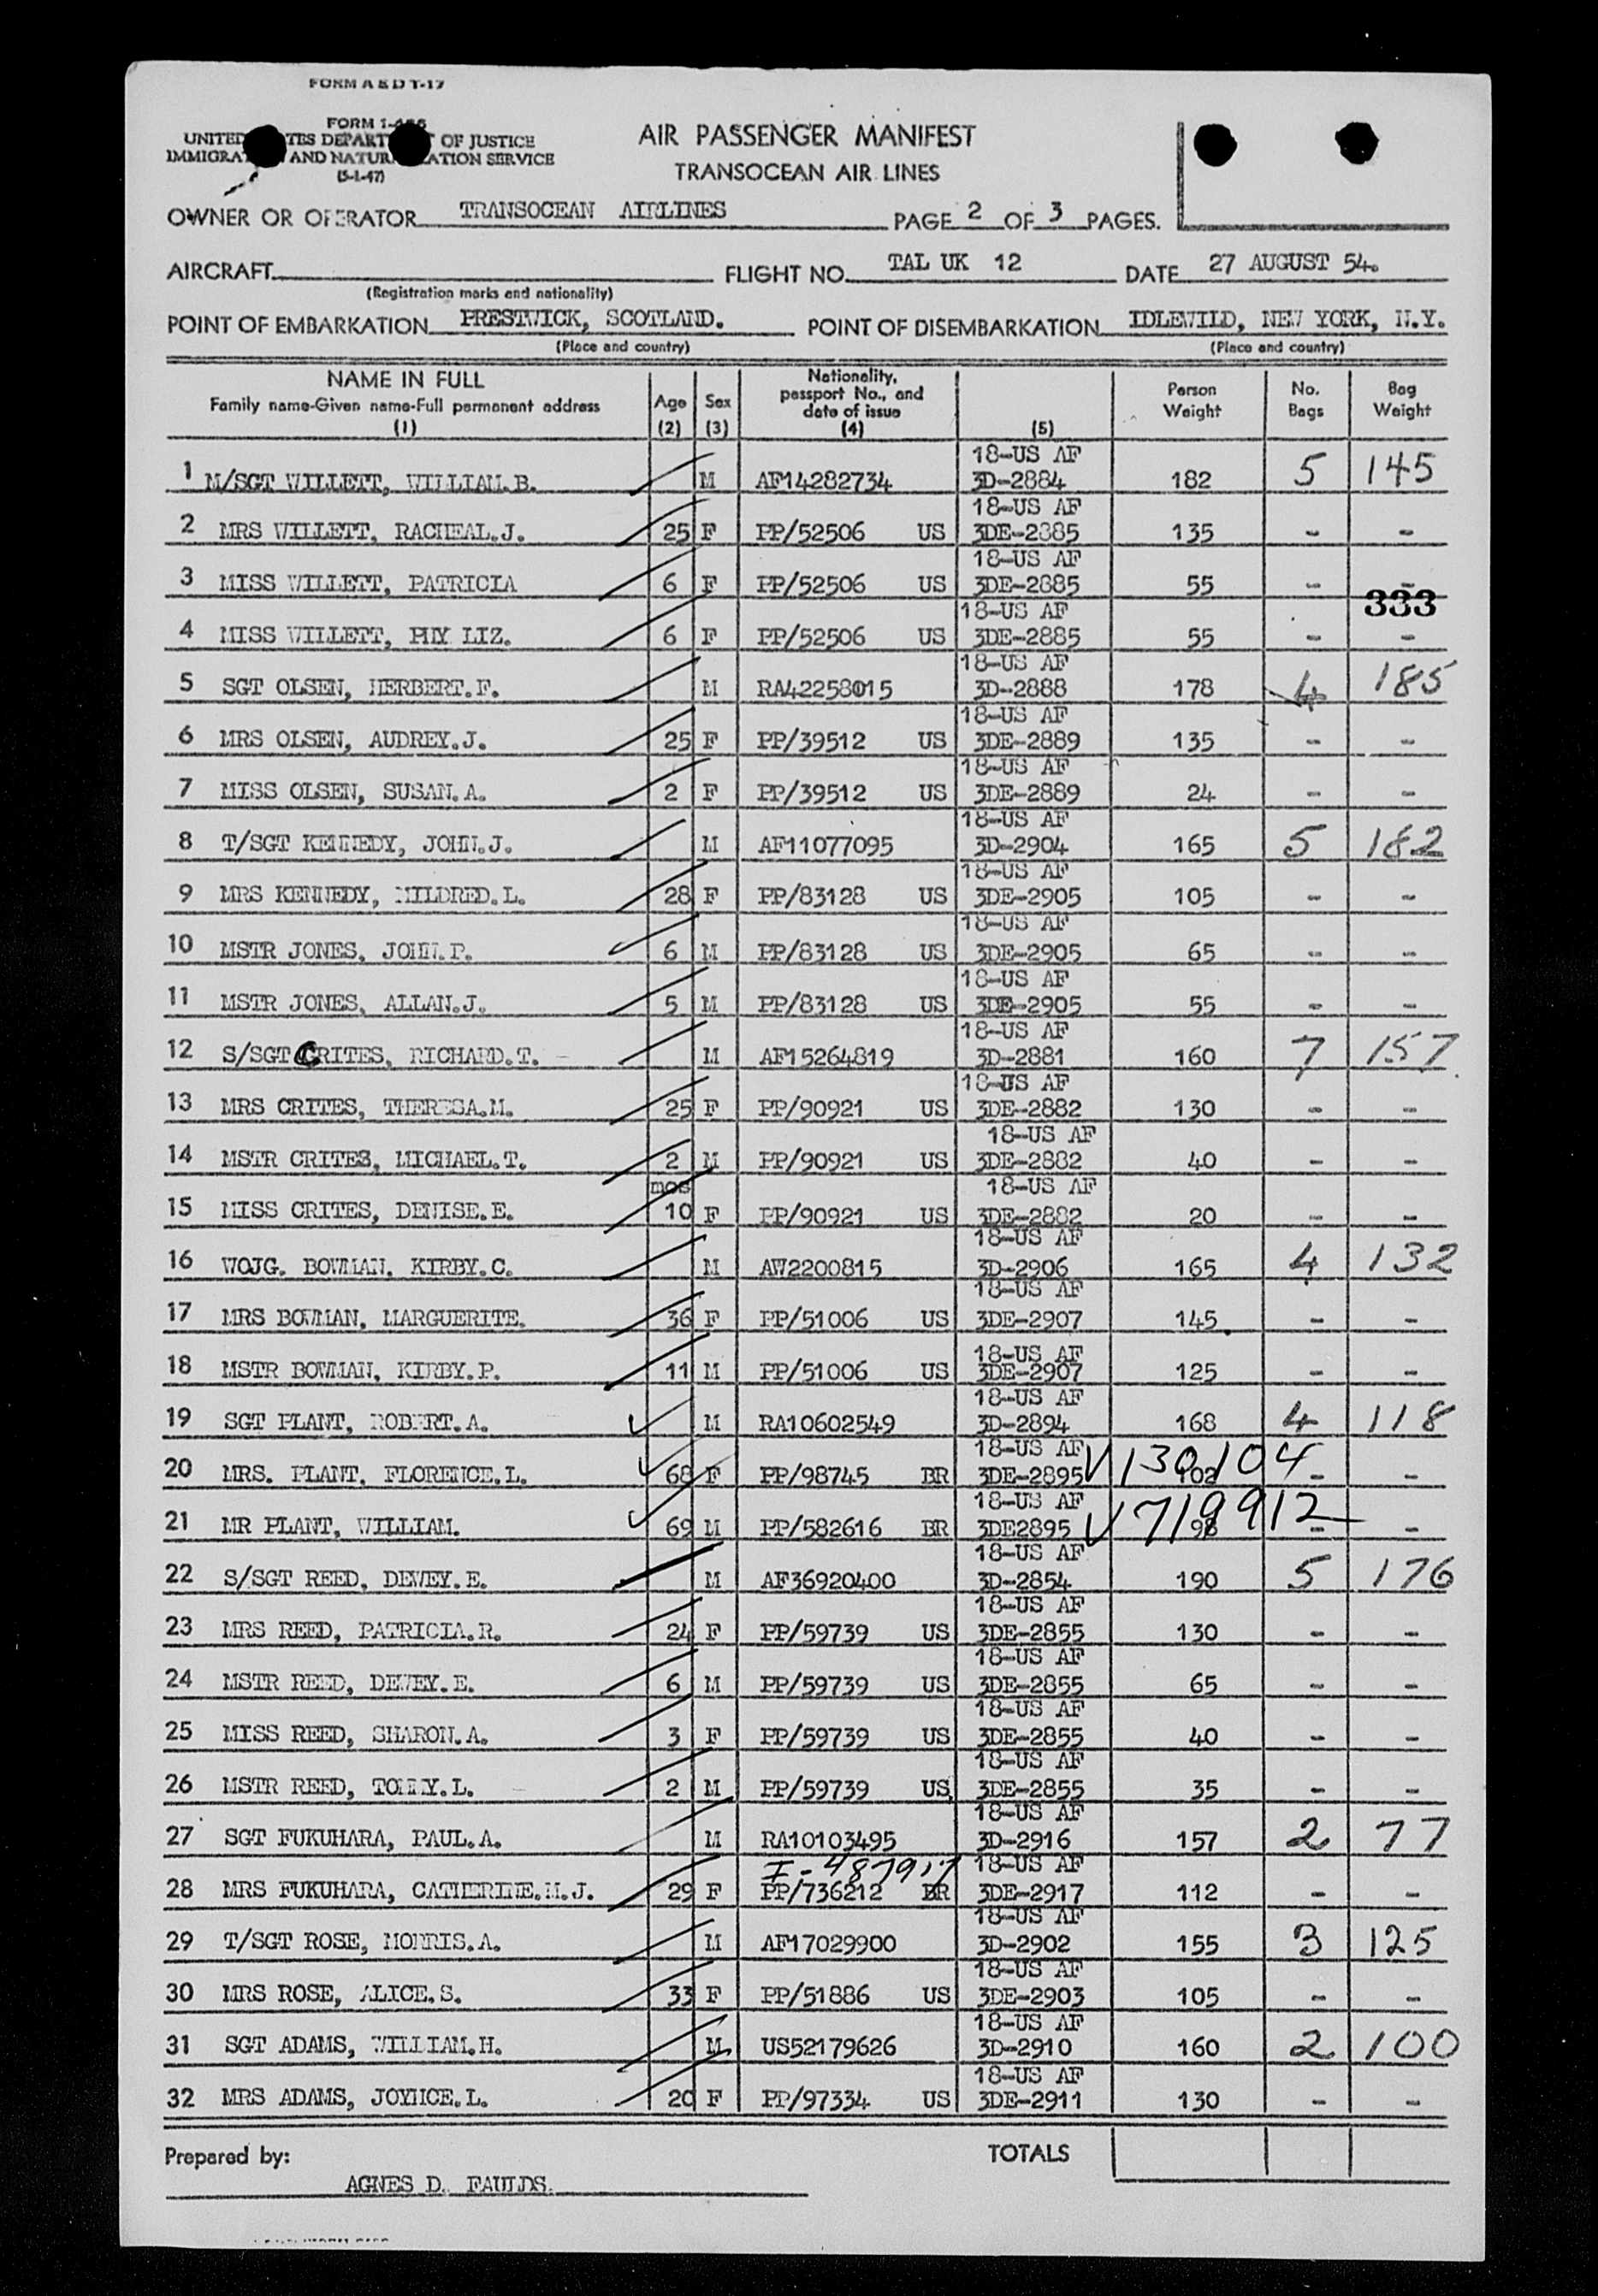 FORM A & D T-17
FORM I-466
UNITED STATES DEPARTMENT OF JUSTICE
IMMIGRATION AND NATURALIZATION SERVICE
(5-1-47)
AIR PASSENGER MANIFEST
TRANSOCEAN AIR LINES
OWNER OR OPERATOR TRANSOCEAN AIRLINES PAGE 2 OF 3 PAGES.
AIRCRAFT FLIGHT NO. TAL UK 12 DATE 27 AUGUST 54.
(Registration marks and nationality)
POINT OF EMBARKATION PRESTWICK, SCOTLAND. POINT OF DISEMBARKATION IDLEWILD, NEW YORK, N.Y.
(Place and country) (Place and country)
NAME IN FULL
Family name-Given name-Full permanent address
(1)
Age
(2)
Sex
(3)
Nationality,
passport No., and
date of issue
(4)
(5)
Person
Weight
No.
Bags
Bag
Weight
18-US AF
1 M/SGT WILLETT, WILLIAM.B. M AF14282734 3D-2884 182 5 145
18-US AF
2 MRS WILLETT, RACHEAL.J. 25 F PP/52506 US 3DE-2885 135 - -
18-US AF
3 MISS WILLETT, PATRICIA 6 F PP/52506 US 3DE-2885 55 - -
333
18-US AF
4 MISS WILLETT, PHY LIZ. 6 F PP/52506 US 3DE-2885 55 - -
18-US AF
5 SGT OLSEN, HERBERT.F. M RA42258015 3D-2888 178 4 185
18-US AF
6 MRS OLSEN, AUDREY.J. 25 F PP/39512 US 3DE-2889 135 - -
18-US AF
7 MISS OLSEN, SUSAN.A. 2 F PP/39512 US 3DE-2889 24 - -
18-US AF
8 T/SGT KENNEDY, JOHN.J. M AF11077095 3D-2904 165 5 182
18-US AF
9 MRS KENNEDY, MILDRED.L. 28 F PP/83128 US 3DE-2905 105 - -
18-US AF
10 MSTR JONES, JOHN.P. 6 M PP/83128 US 3DE-2905 65 - -
18-US AF
11 MSTR JONES, ALLAN.J. 5 M PP/83128 US 3DE-2905 55 - -
18-US AF
12 S/SGT CRITES, RICHARD.T. M AF15264819 3D-2881 160 7 157
18-US AF
13 MRS CRITES, THERESA.M. 25 F PP/90921 US 3DE-2882 130 - -
18-US AF
14 MSTR CRITES, MICHAEL.T. 2 M PP/90921 US 3DE-2882 40 - -
mos 18-US AF
15 MISS CRITES, DENISE.E. 10 F PP/90921 US 3DE-2882 20 - -
18-US AF
16 WOJG. BOWMAN. KIRBY.C. M AW2200815 3D-2906 165 4 132
18-US AF
17 MRS BOWMAN, MARGUERITE. 36 F PP/51006 US 3DE-2907 145 - -
18-US AF
18 MSTR BOWMAN, KIRBY.P. 11 M PP/51006 US 3DE-2907 125 - -
18-US AF
19 SGT PLANT, ROBERT.A. M RA10602549 3D-2894 168 4 118
18-US AF
20 MRS. PLANT, FLORENCE.L. 68 F PP/98745 BR 3DE-2895 130104 102 - -
18-US AF
21 MR PLANT, WILLIAM. 69 M PP/582616 BR 3DE2895 719912 98 - -
18-US AF
22 S/SGT REED, DEWEY.E. M AF36920400 3D-2854 190 5 176
18-US AF
23 MRS REED, PATRICIA.R. 24 F PP/59739 US 3DE-2855 130 - -
18-US AF
24 MSTR REED, DEWEY.E. 6 M PP/59739 US 3DE-2855 65 - -
18-US AF
25 MISS REED, SHARON.A. 3 F PP/59739 US 3DE-2855 40 - -
18-US AF
26 MSTR REED, TOMMY.L. 2 M PP/59739 US 3DE-2855 35 - -
18-US AF
27 SGT FUKUHARA, PAUL.A. M RA10103495 3D-2916 157 2 77
18-US AF
28 MRS FUKUHARA, CATHERINE.M.J. 29 F PP/736212 BR 3DE-2917 112 - -
18-US AF
29 T/SGT ROSE, MORRIS.A. M AF17029900 3D-2902 155 3 125
18-US AF
30 MRS ROSE, ALICE.S. 33 F PP/51886 US 3DE-2903 105 - -
18-US AF
31 SGT ADAMS, WILLIAM.H. M US52179626 3D-2910 160 2 100
18-US AF
32 MRS ADAMS, JOYNCE.L. 20 F PP/97334 US 3DE-2911 130 - -
Prepared by: TOTALS
AGNES D. FAULDS.